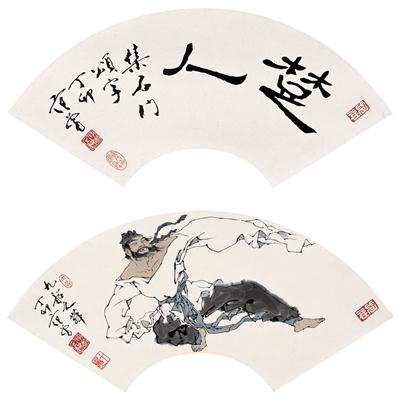 楚人
集石门
頌字
丁卯
范曾
九歌之
丁卯范曾